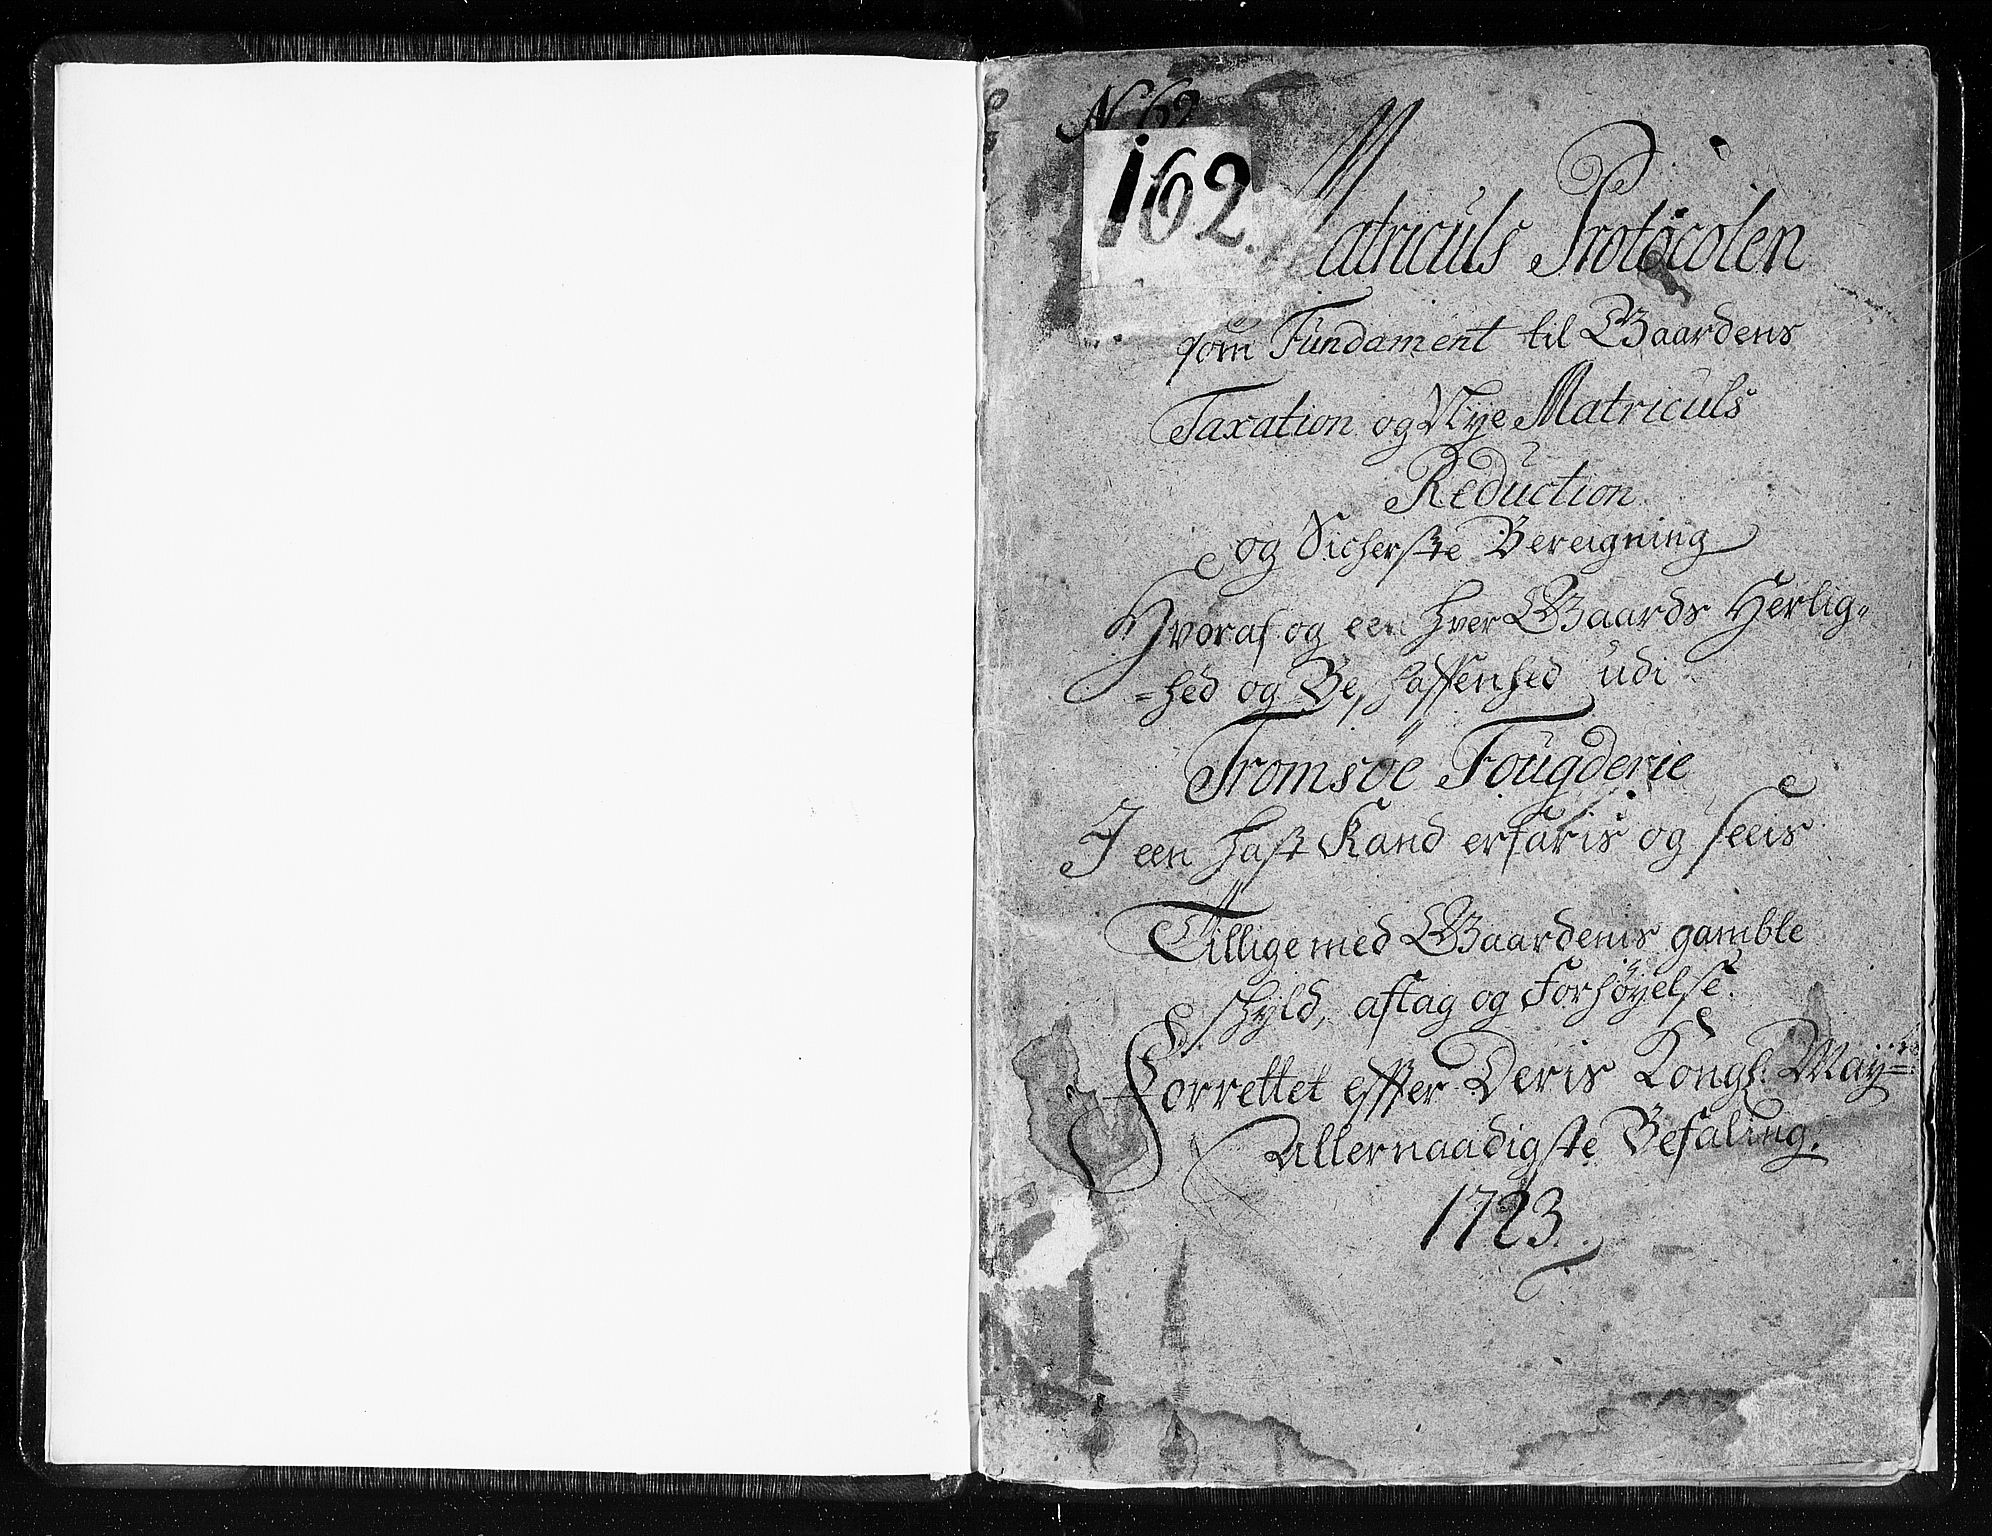 N 62
162.
Matriculs Protocolen
som Fundament til Gaardens
Taxation og Nye Matriculs
Reduction
og Sicherste Bereigning
Hvoraf og een hver Gaards Herlig-
=hed og Beskaffenhed udi
Tromsøe Fougderie
I een hast Kand erfaris og seeis
Tillige med Gaardenis gamble
skyld, aftag og Forhøyelse.
Forrettet effter Deris Kongl. May=
Allernaadigste Befaling.
1723.